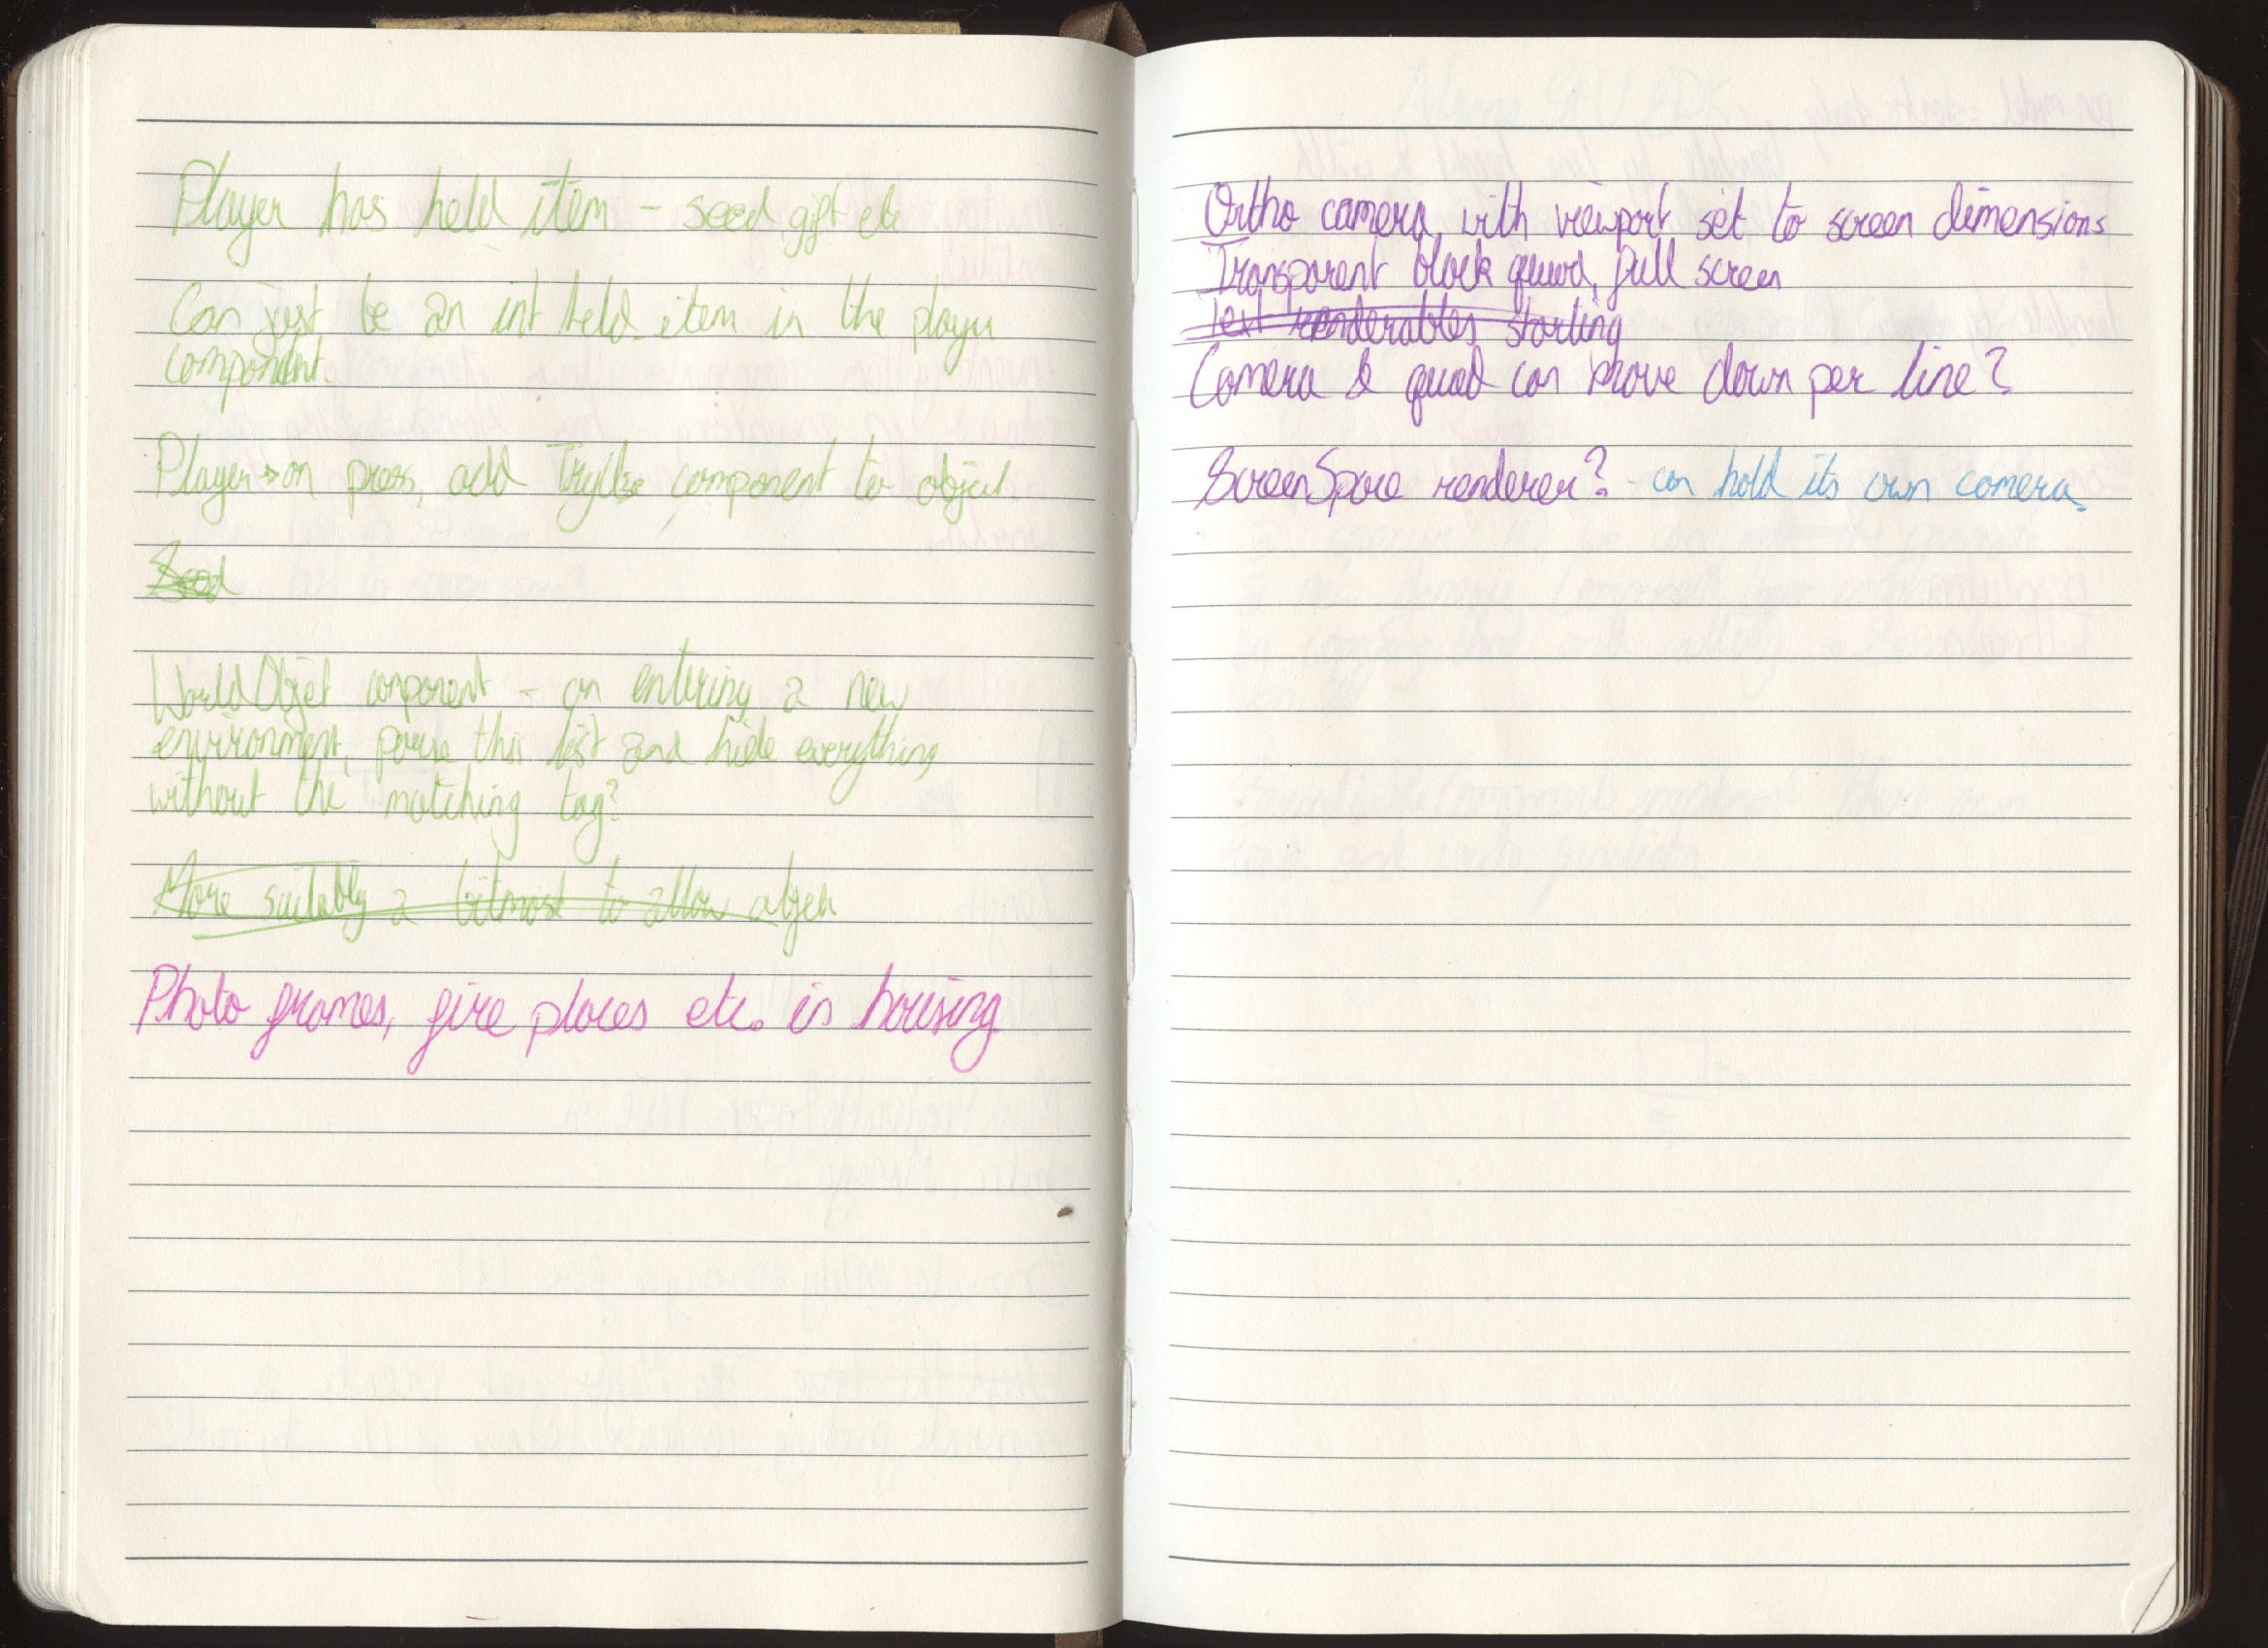 Player has held item - seed, gift etc
Can just be an int held_item in the player
component.
Player → on press, add component to object.
Seed
WorldObject component - on entering a new
environment, peruse this list and hide everything
without the matching tag?
More suitably a bitmask to allow objec
Photo frames, fire places etc. in housing
Ortho camera, with viewport set to screen dimensions
Transparent black quad, full screen
Text renderables starting
Camera & quad can move down per line?
ScreenSpace renderer? - can hold its own camera.